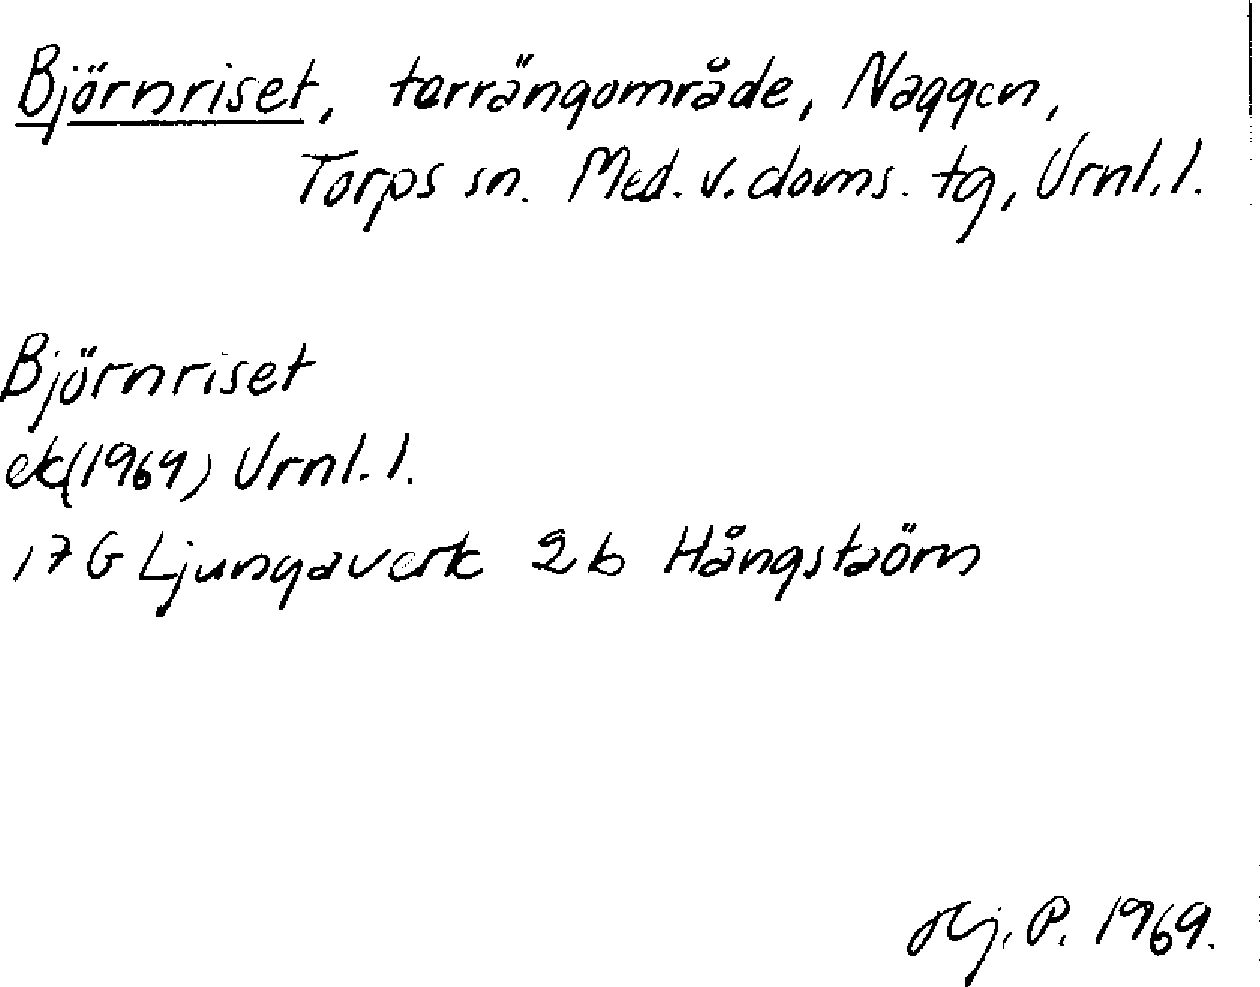 Björnriset, terrängområde, Naggen,
Torps sn. Med. v. doms. tg, Vrnl. l.
Björnriset
ek (1969) Vrnl. l.
17 G Ljungaverk 2 b Hångstaörn
Hj. P. 1969.